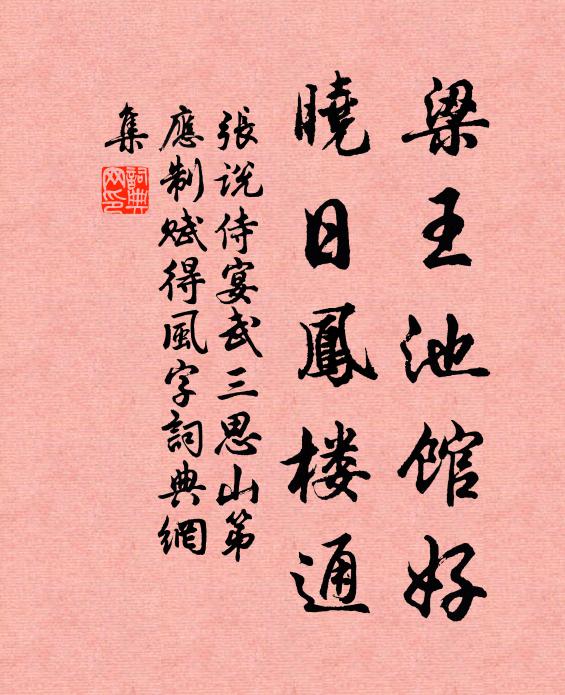 梁王池馆好
曉日鳳楼通
張说侍宴武三思山第
應制赋得風字詞典網
集
詞典
网印